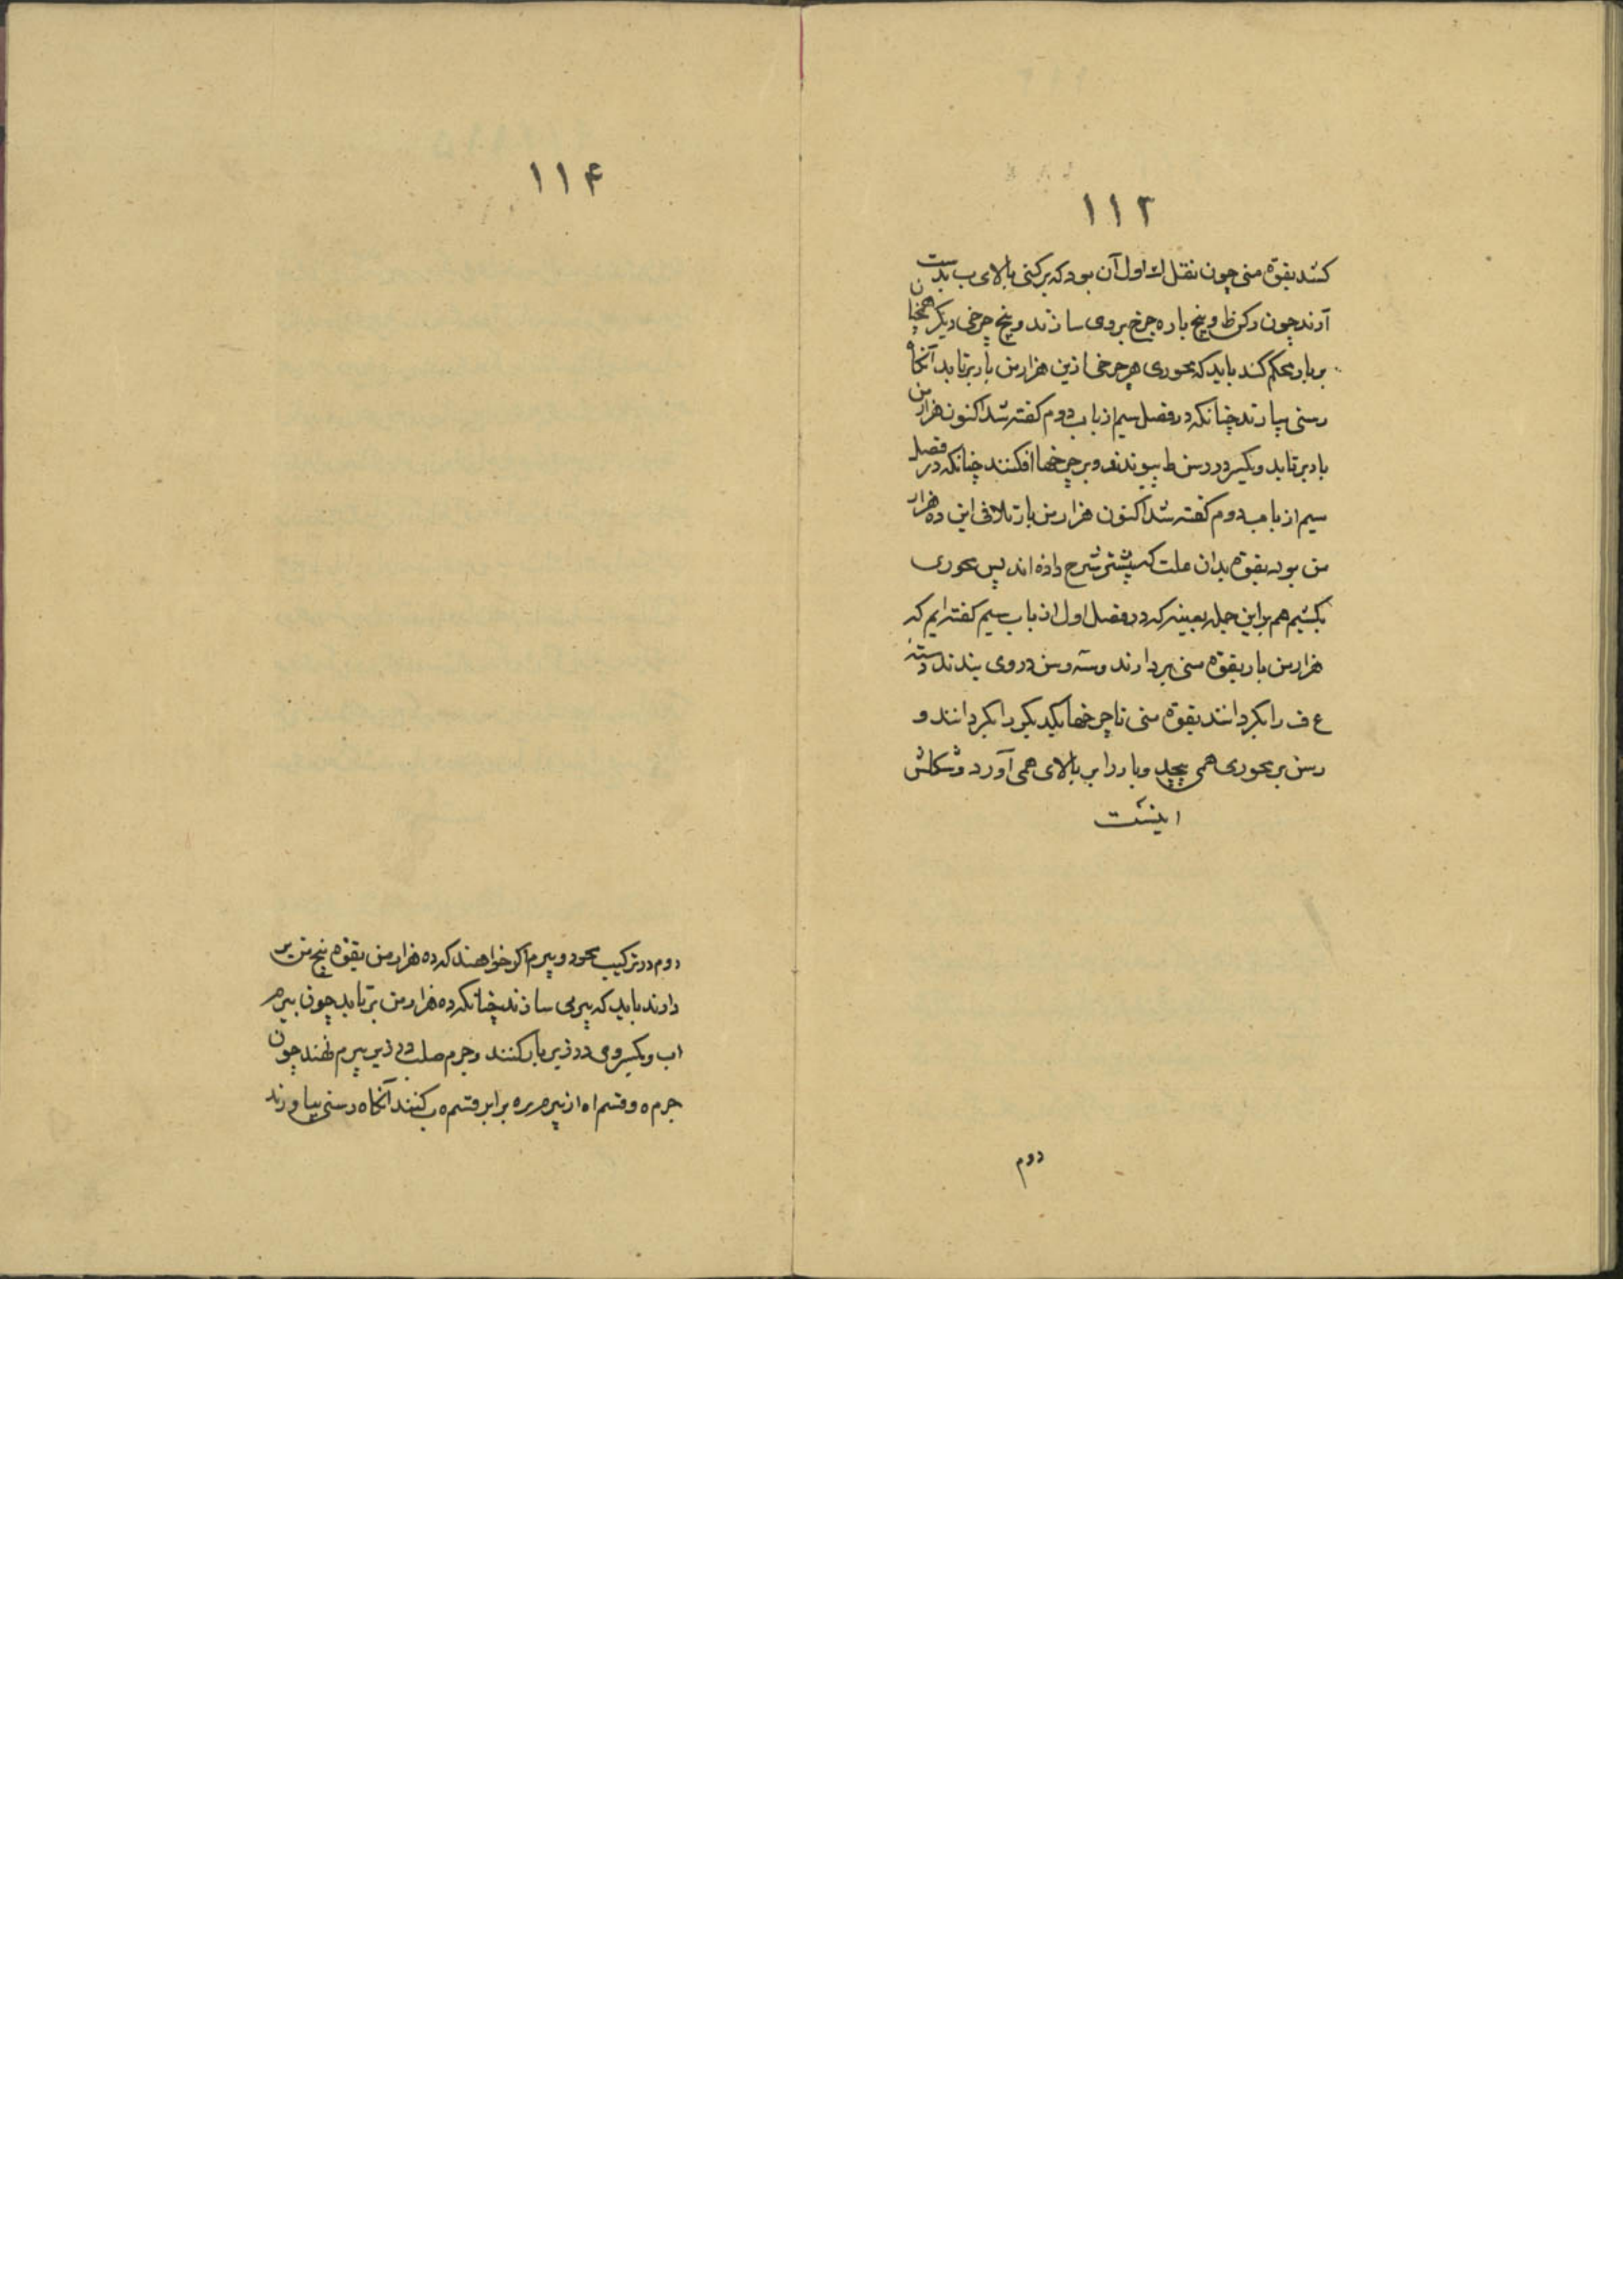 ۱۱۲
کشد بقوه منی چون نقل ك اول آن بود که برکنی بالای ب بدست
آرند چون رکن ظ و پنج باره چرخ بروی سازند و پنج چرخی دیکر همچنان
بر بار محکم کند باید که محوری هر چرخی ازین هزار من بار برتابد آنکاه
رسنی بیارند چنانکه در فصل سیم از باب دوم کفته شد اکنون هزار من
بار برتابد ویکسر در رسن ط پیوندند و بر چرخها افکنند چنانکه در فصل
سیم از باب دوم کفته شد اکنون هزار من بار تلافی این ده هزار
من بود بقوه بدان علت که پیشتر شرح داده اند پس محوری
بکشیم هم بر این حیله بعینه که در فصل اول از باب سیم کفته ایم که
هزار من بار بقوه منی بردارند وسر رسن در وی بندند و دسته
ع ف را بکردانند بقوه منی تا چرخها یکدیکر را بکردانند و
رسن بر محوری همی پیچد و بار را بر بالای همی آورد و شکلش
اینست
دوم
۱۱۴
دوم در ترکیب محور و بیرم اکر خواهند که ده هزار من بقوه پنج من بر
دارند باید که بیرمی سازند چنانکه ده هزار من برتابد چون بیرم
اب ویکسر وی در زیر بار کنند و جرم صلب در زیر بیرم نهند چون
جرم ه و قسم اه از بیرم ره برابر قسم ه ب کنند آنکاه رسنی بیاورند